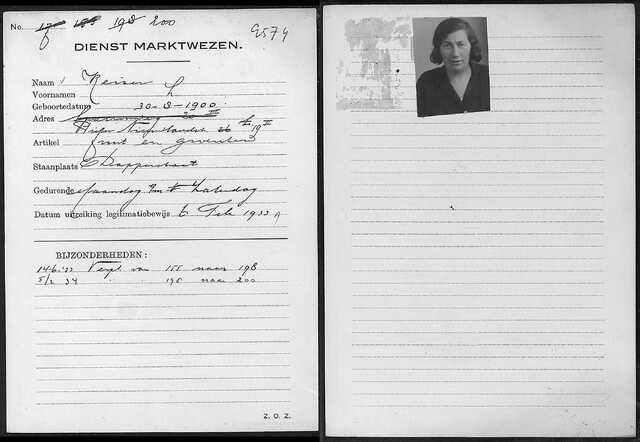 No. 198 200
9574
DIENST MARKTWEZEN.
Naam Keizer L
Voornamen
Geboortedatum 30-8-1900.
Adres
19 II
Artikel fruit en groenten
Staanplaats Dapperstraat
Gedurende Maandag t/m Zaterdag
Datum uitreiking legitimatiebewijs 6 Feb 1933
BIJZONDERHEDEN:
14-6-33 Verpl. van 155 naar 198
5/2 34 " " 198 naar 200
Z. O. Z.